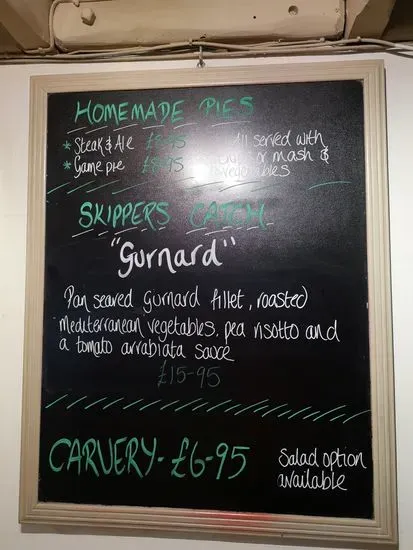 HOMEMADE PIES
* Steak & Ale All served with
* Game pie or mash &
vegetables
SKIPPERS CATCH
"Gurnard"
Pan seared Gurnard fillet, roasted
mediterranean vegetables, pea risotto and
a tomato arrabiata sauce
£15-95
CARVERY - £6-95
Salad option
available